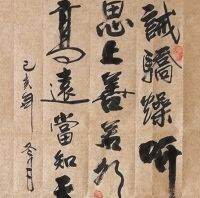 誡驕躁听
思上善若水
高遠當知天
己亥年
冬月